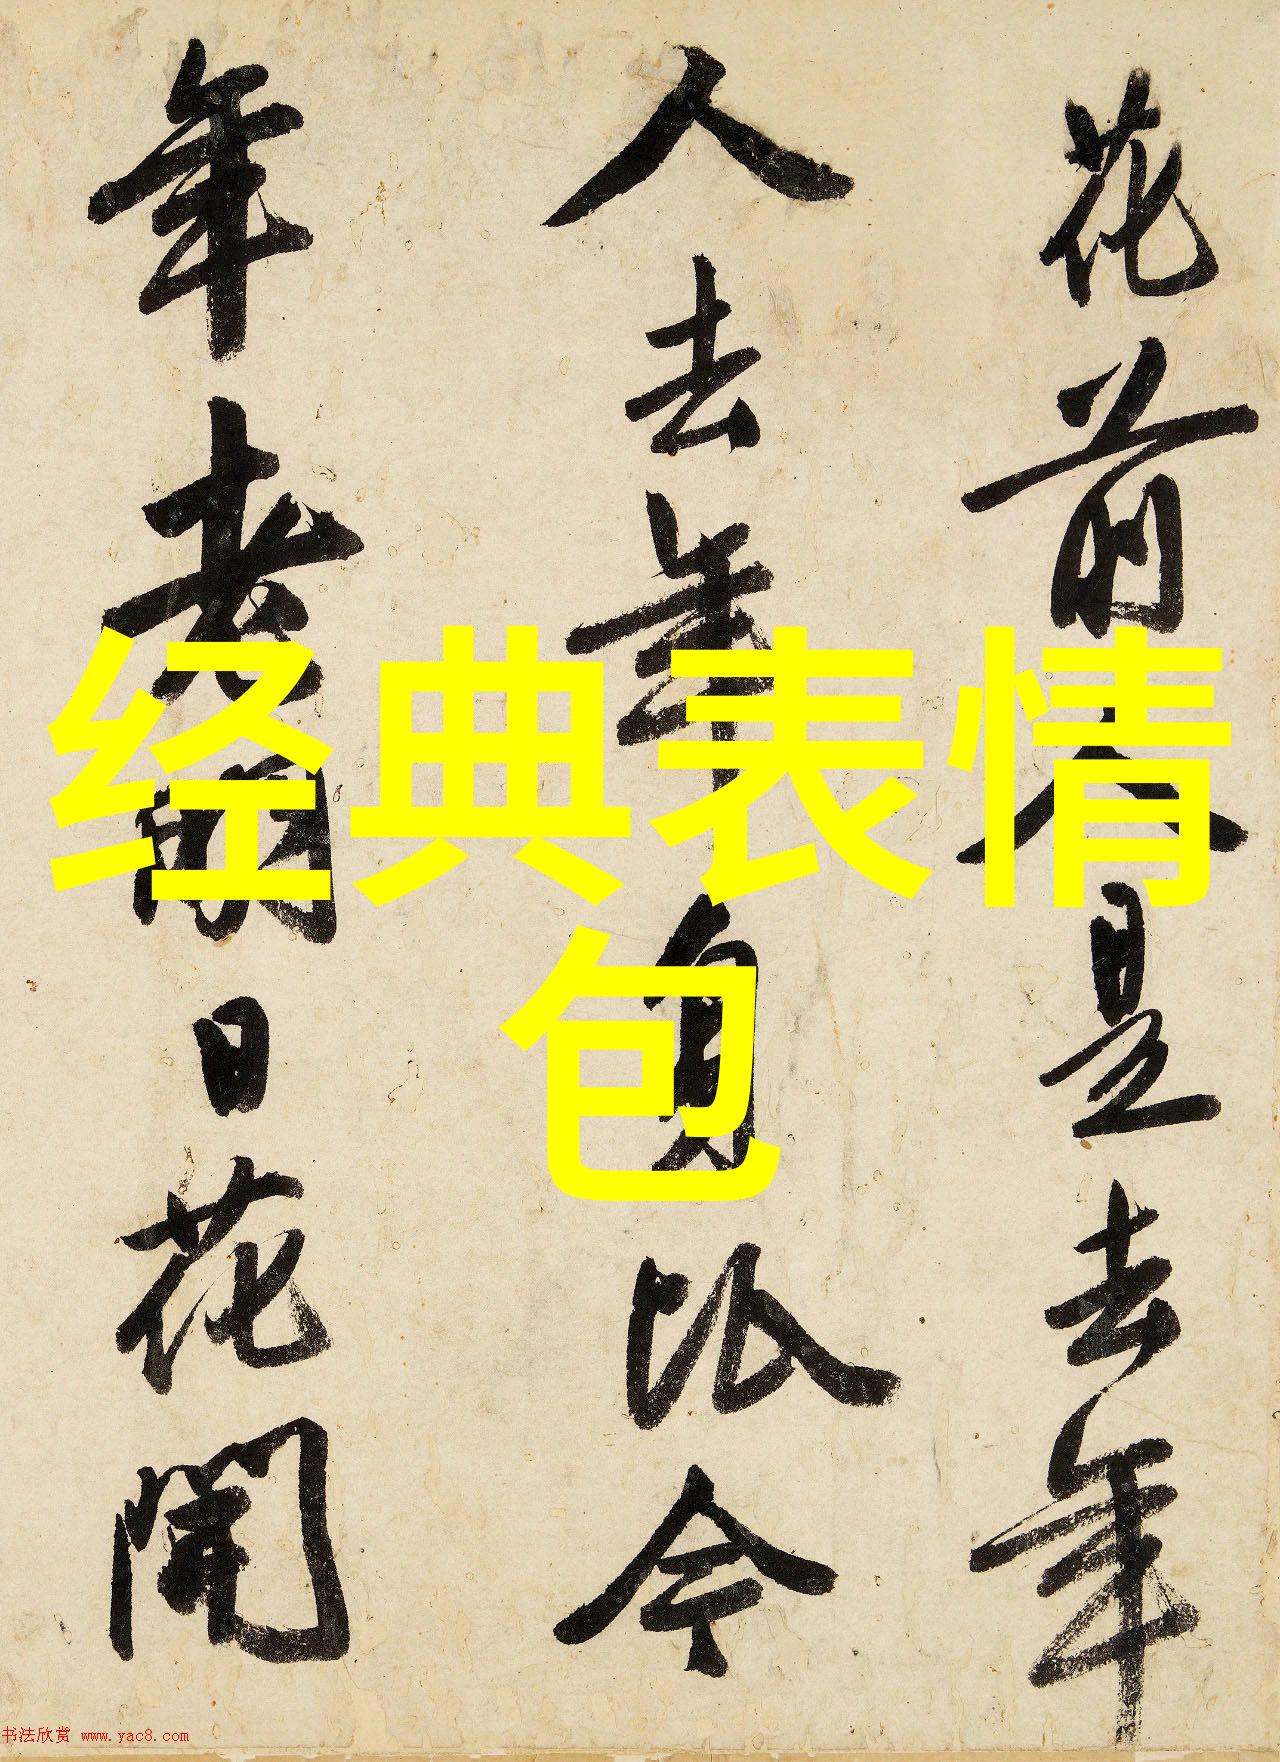 花前人是去年
人去年身比今
年老明日花開
经典表情
包
书法欣赏 www.yac8.com